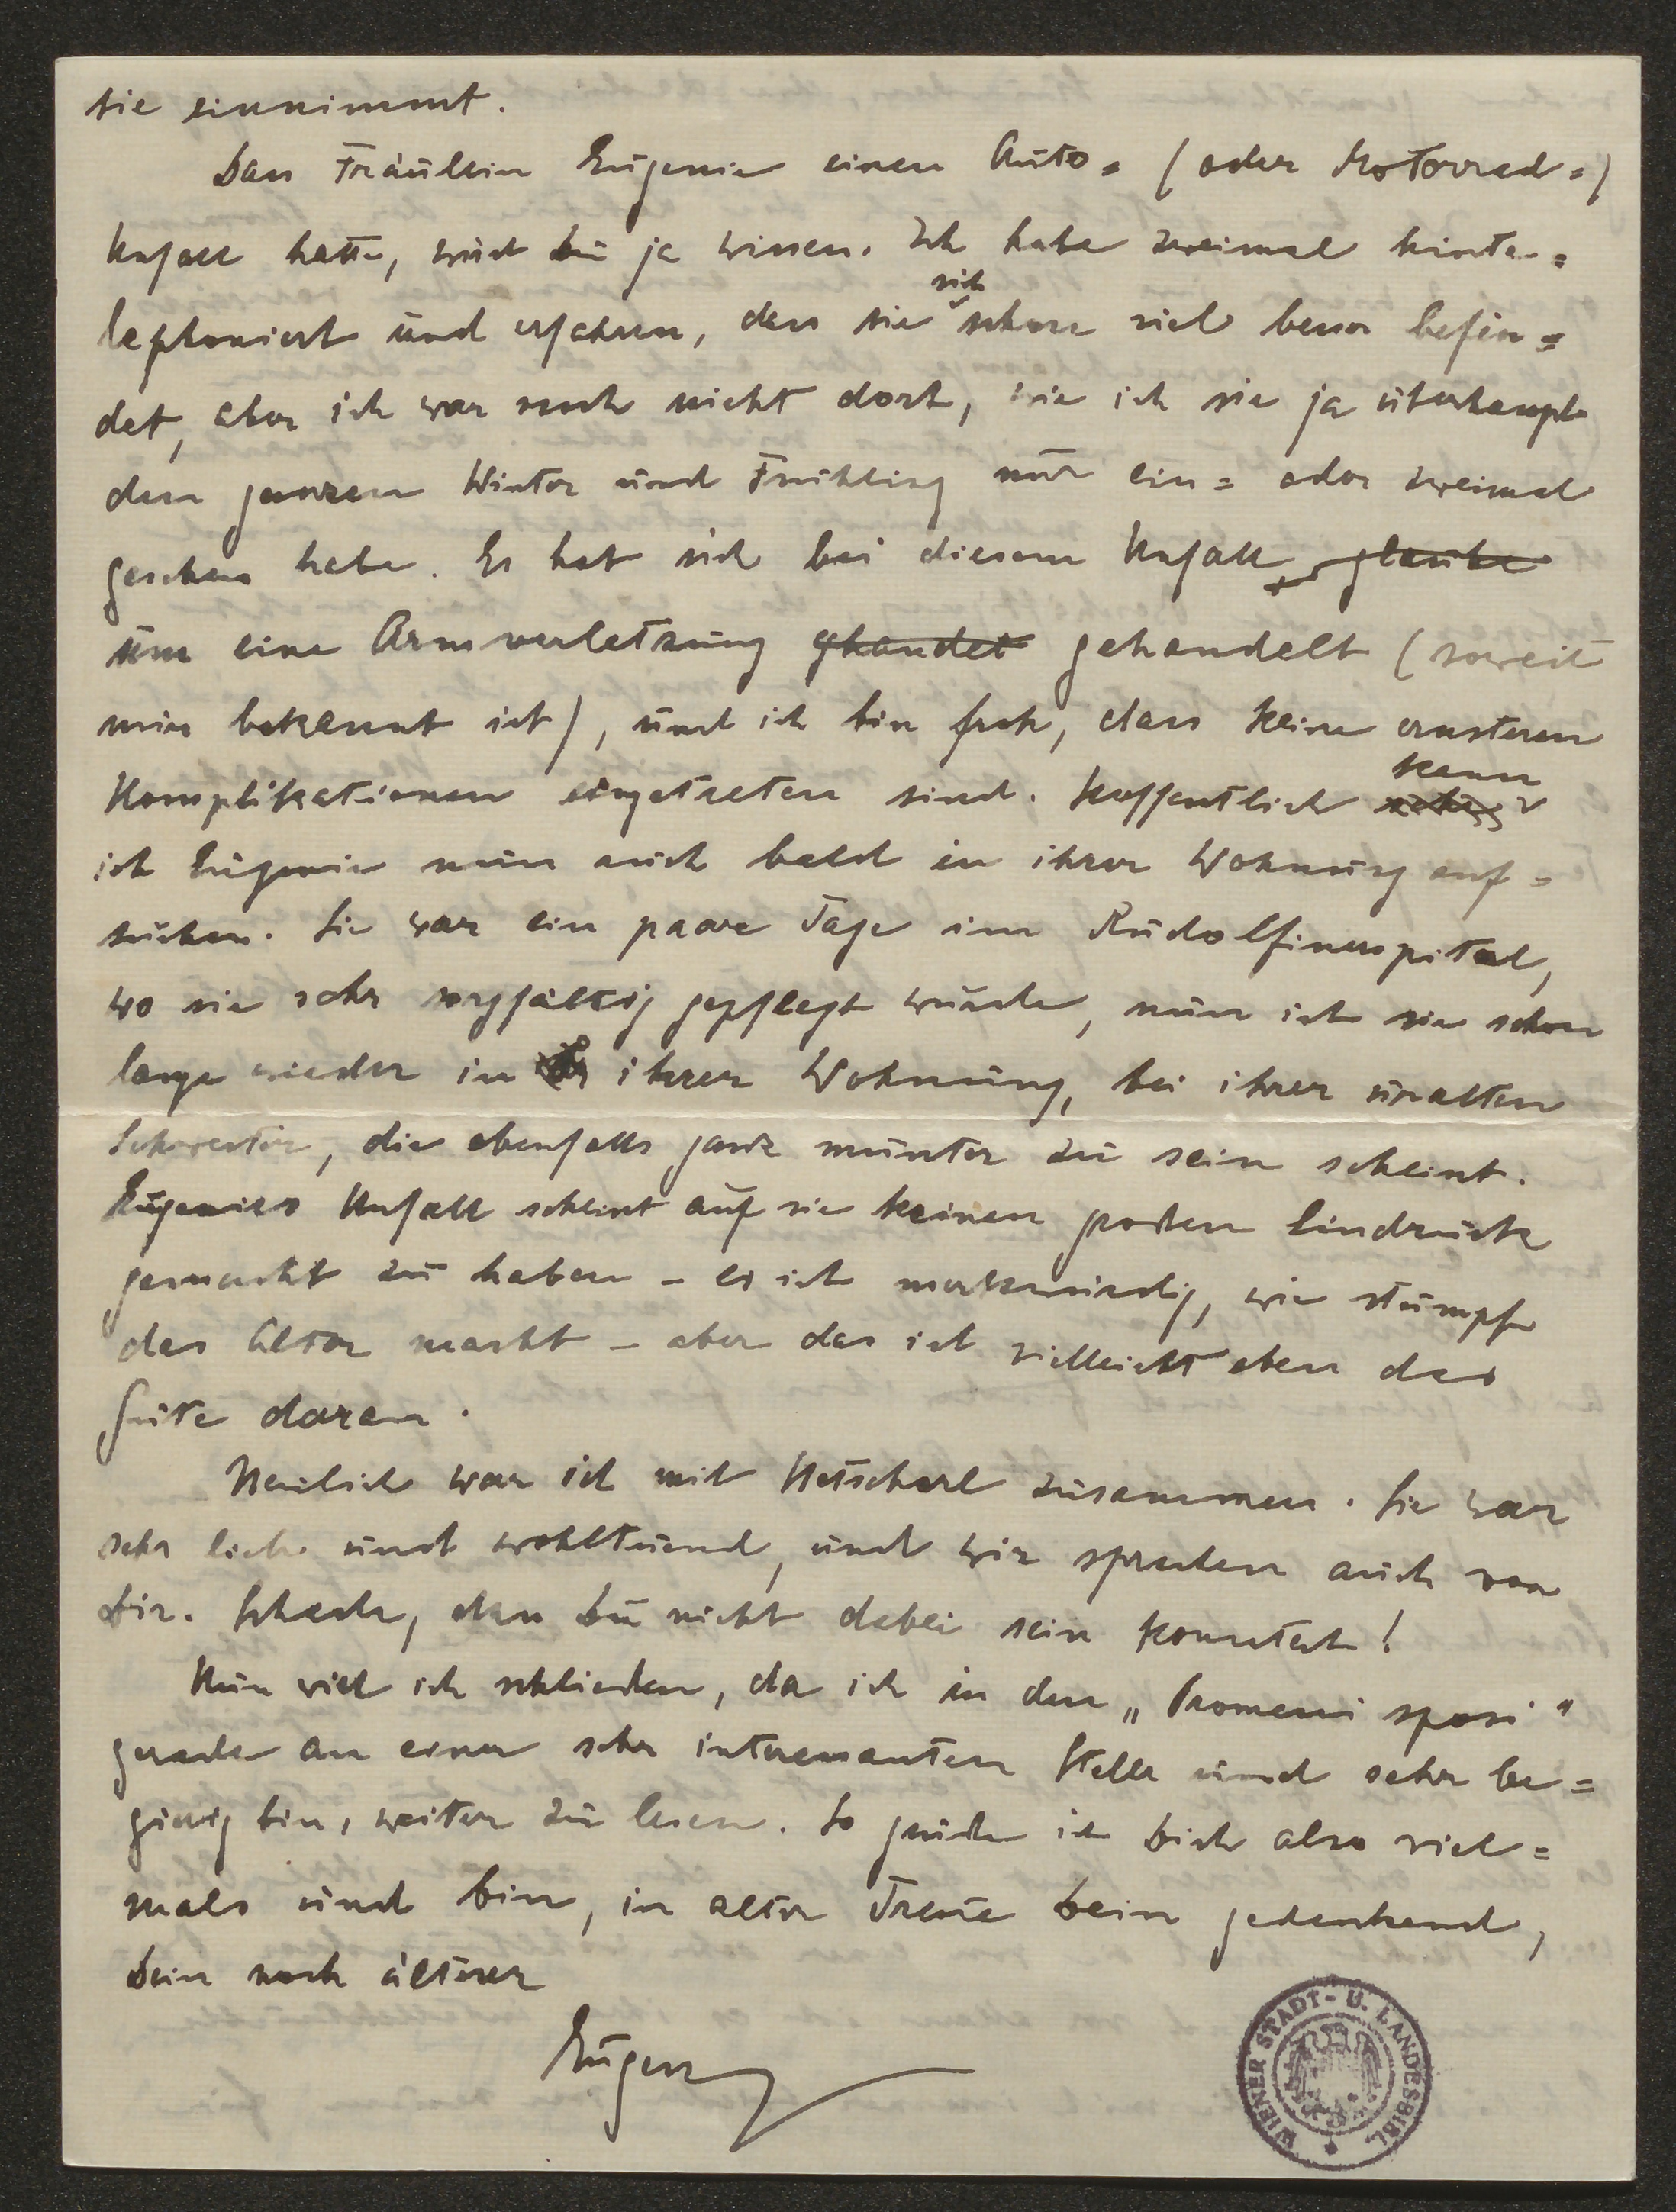 sie einnimmt.
Dass Fräulein Eugenie einen Auto= (oder Motorrad=)
Unfall hatte, wirst Du ja wissen. Ich habe zweimal hinte=
lephoniert und erfahren, dass sie sich schon viel besser befin=
det, aber ich war noch nicht dort, wie ich sie ja überhaupt
den ganzen Winter und Frühling nur ein= oder zweimal
gesehen habe. Es hat sich bei diesem Unfall, glaube
um eine Armverletzung ghandet gehandelt (soweit
mir bekannt ist), und ich bin froh, dass keine ernsteren
Komplikationen eingetreten sind. Hoffentlich kann
ich Eugenie nun auch bald in ihrer Wohnung auf=
suchen. Sie war ein paar Tage im Rudolfinerspital,
wo sie sehr sorgfältig gepflegt wurde, nun ist sie schon
lange wieder in ihrer Wohnung, bei ihrer uralten
Schwester, die ebenfalls ganz munter zu sein scheint.
Eugenies Unfall scheint auf sie keinen großen Eindruck
gemacht zu haben – es ist merkwürdig, wie stumpf
das Alter macht – aber das ist vielleicht eben das
Gute daran.
Neulich war ich mit Hetscherl zusammen. Sie war
sehr lieb und wohltuend, und wir sprachen auch von
Dir. Schade, dass Du nicht dabei sein konntest!
Nun will ich schließen, da ich in den „Promessi sposi“
gerade an einer sehr interessanten Stelle und sehr be=
gierig bin, weiter zu lesen. So grüße ich Dich also viel=
mals und bin, in alter Treue Dein gedenkend,
Dein noch älterer
Eugen
WIENER STADT- U. LANDESBIBL.